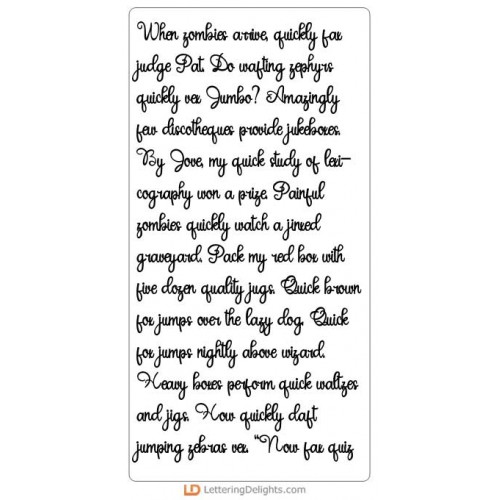 When zombies arrive, quickly fax
judge Pat. Do wafting zephyrs
quickly vex Jumbo? Amazingly
few discotheques provide jukeboxes.
By Jove, my quick study of lexi-
cography won a prize. Painful
zombies quickly watch a jinxed
graveyard. Pack my red box with
five dozen quality jugs. Quick brown
fox jumps over the lazy dog. Quick
fox jumps nightly above wizard.
Heavy boxes perform quick waltzes
and jigs. How quickly daft
jumping zebras vex. "Now fax quiz
LD LetteringDelights.com